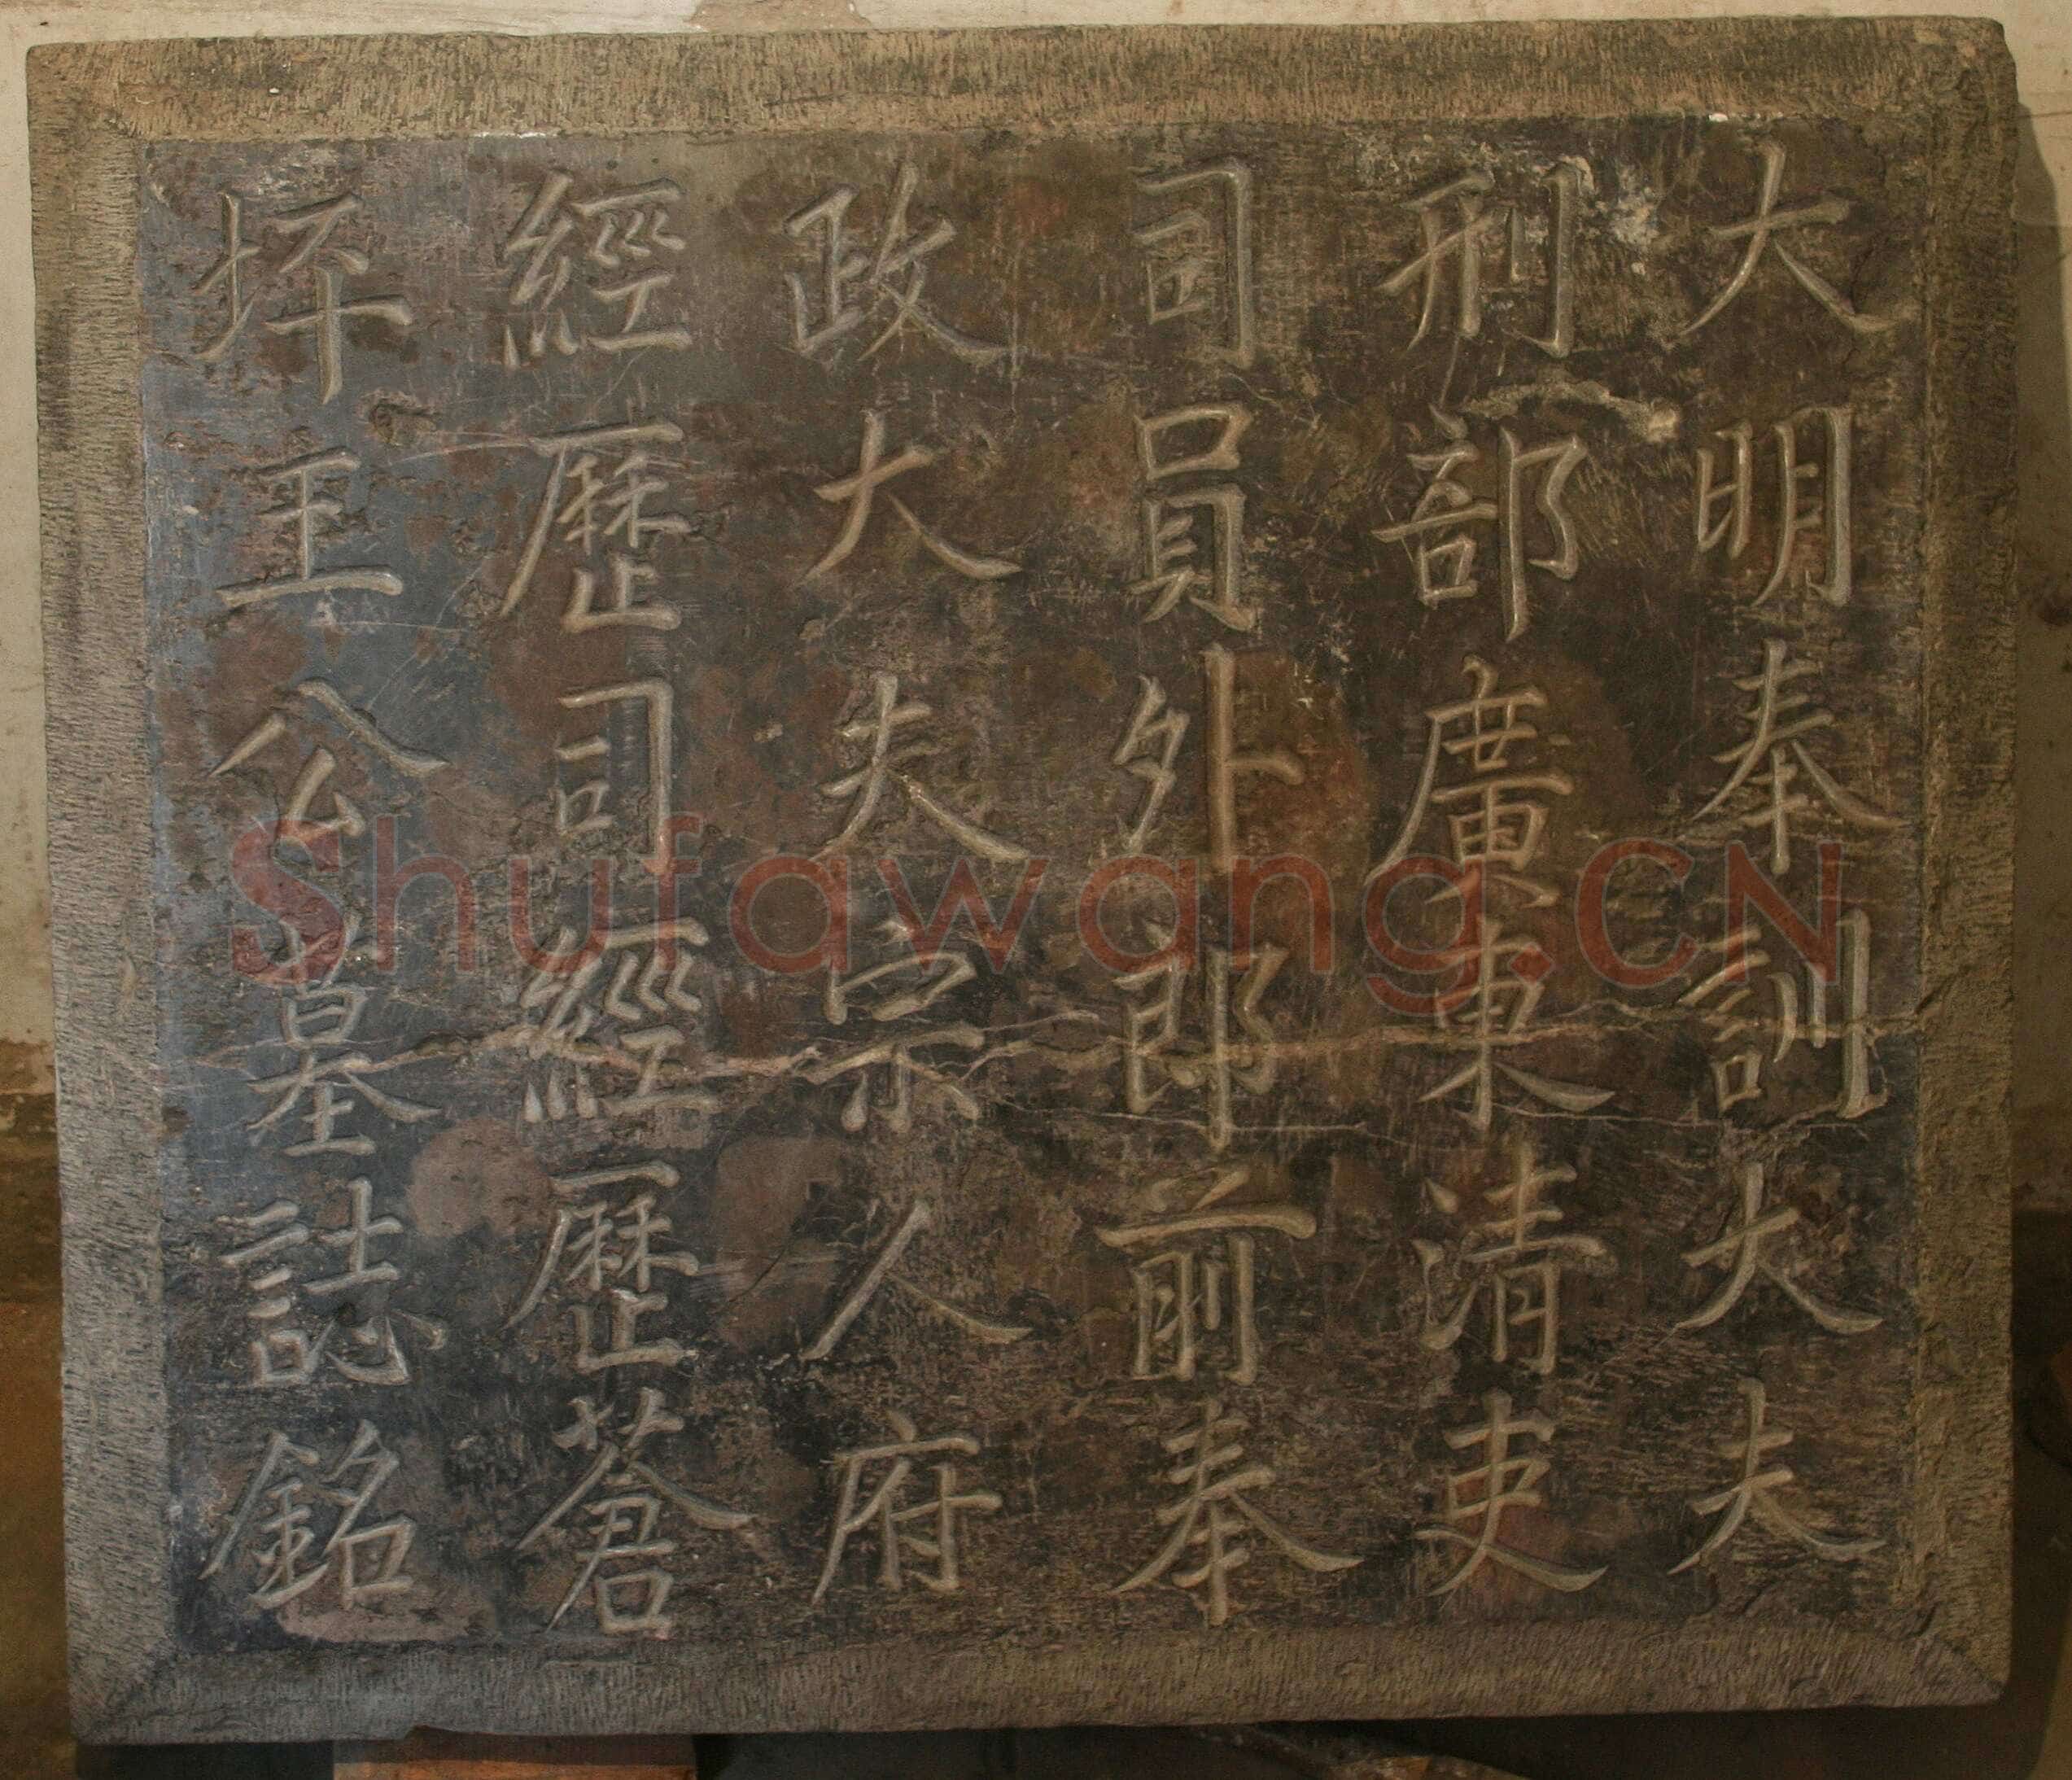 大明奉訓大夫
刑部廣東清吏
司員外郎前奉
政大夫宗人府
經歷司經歷蒼
坪王公墓誌銘
Shufawang.CN